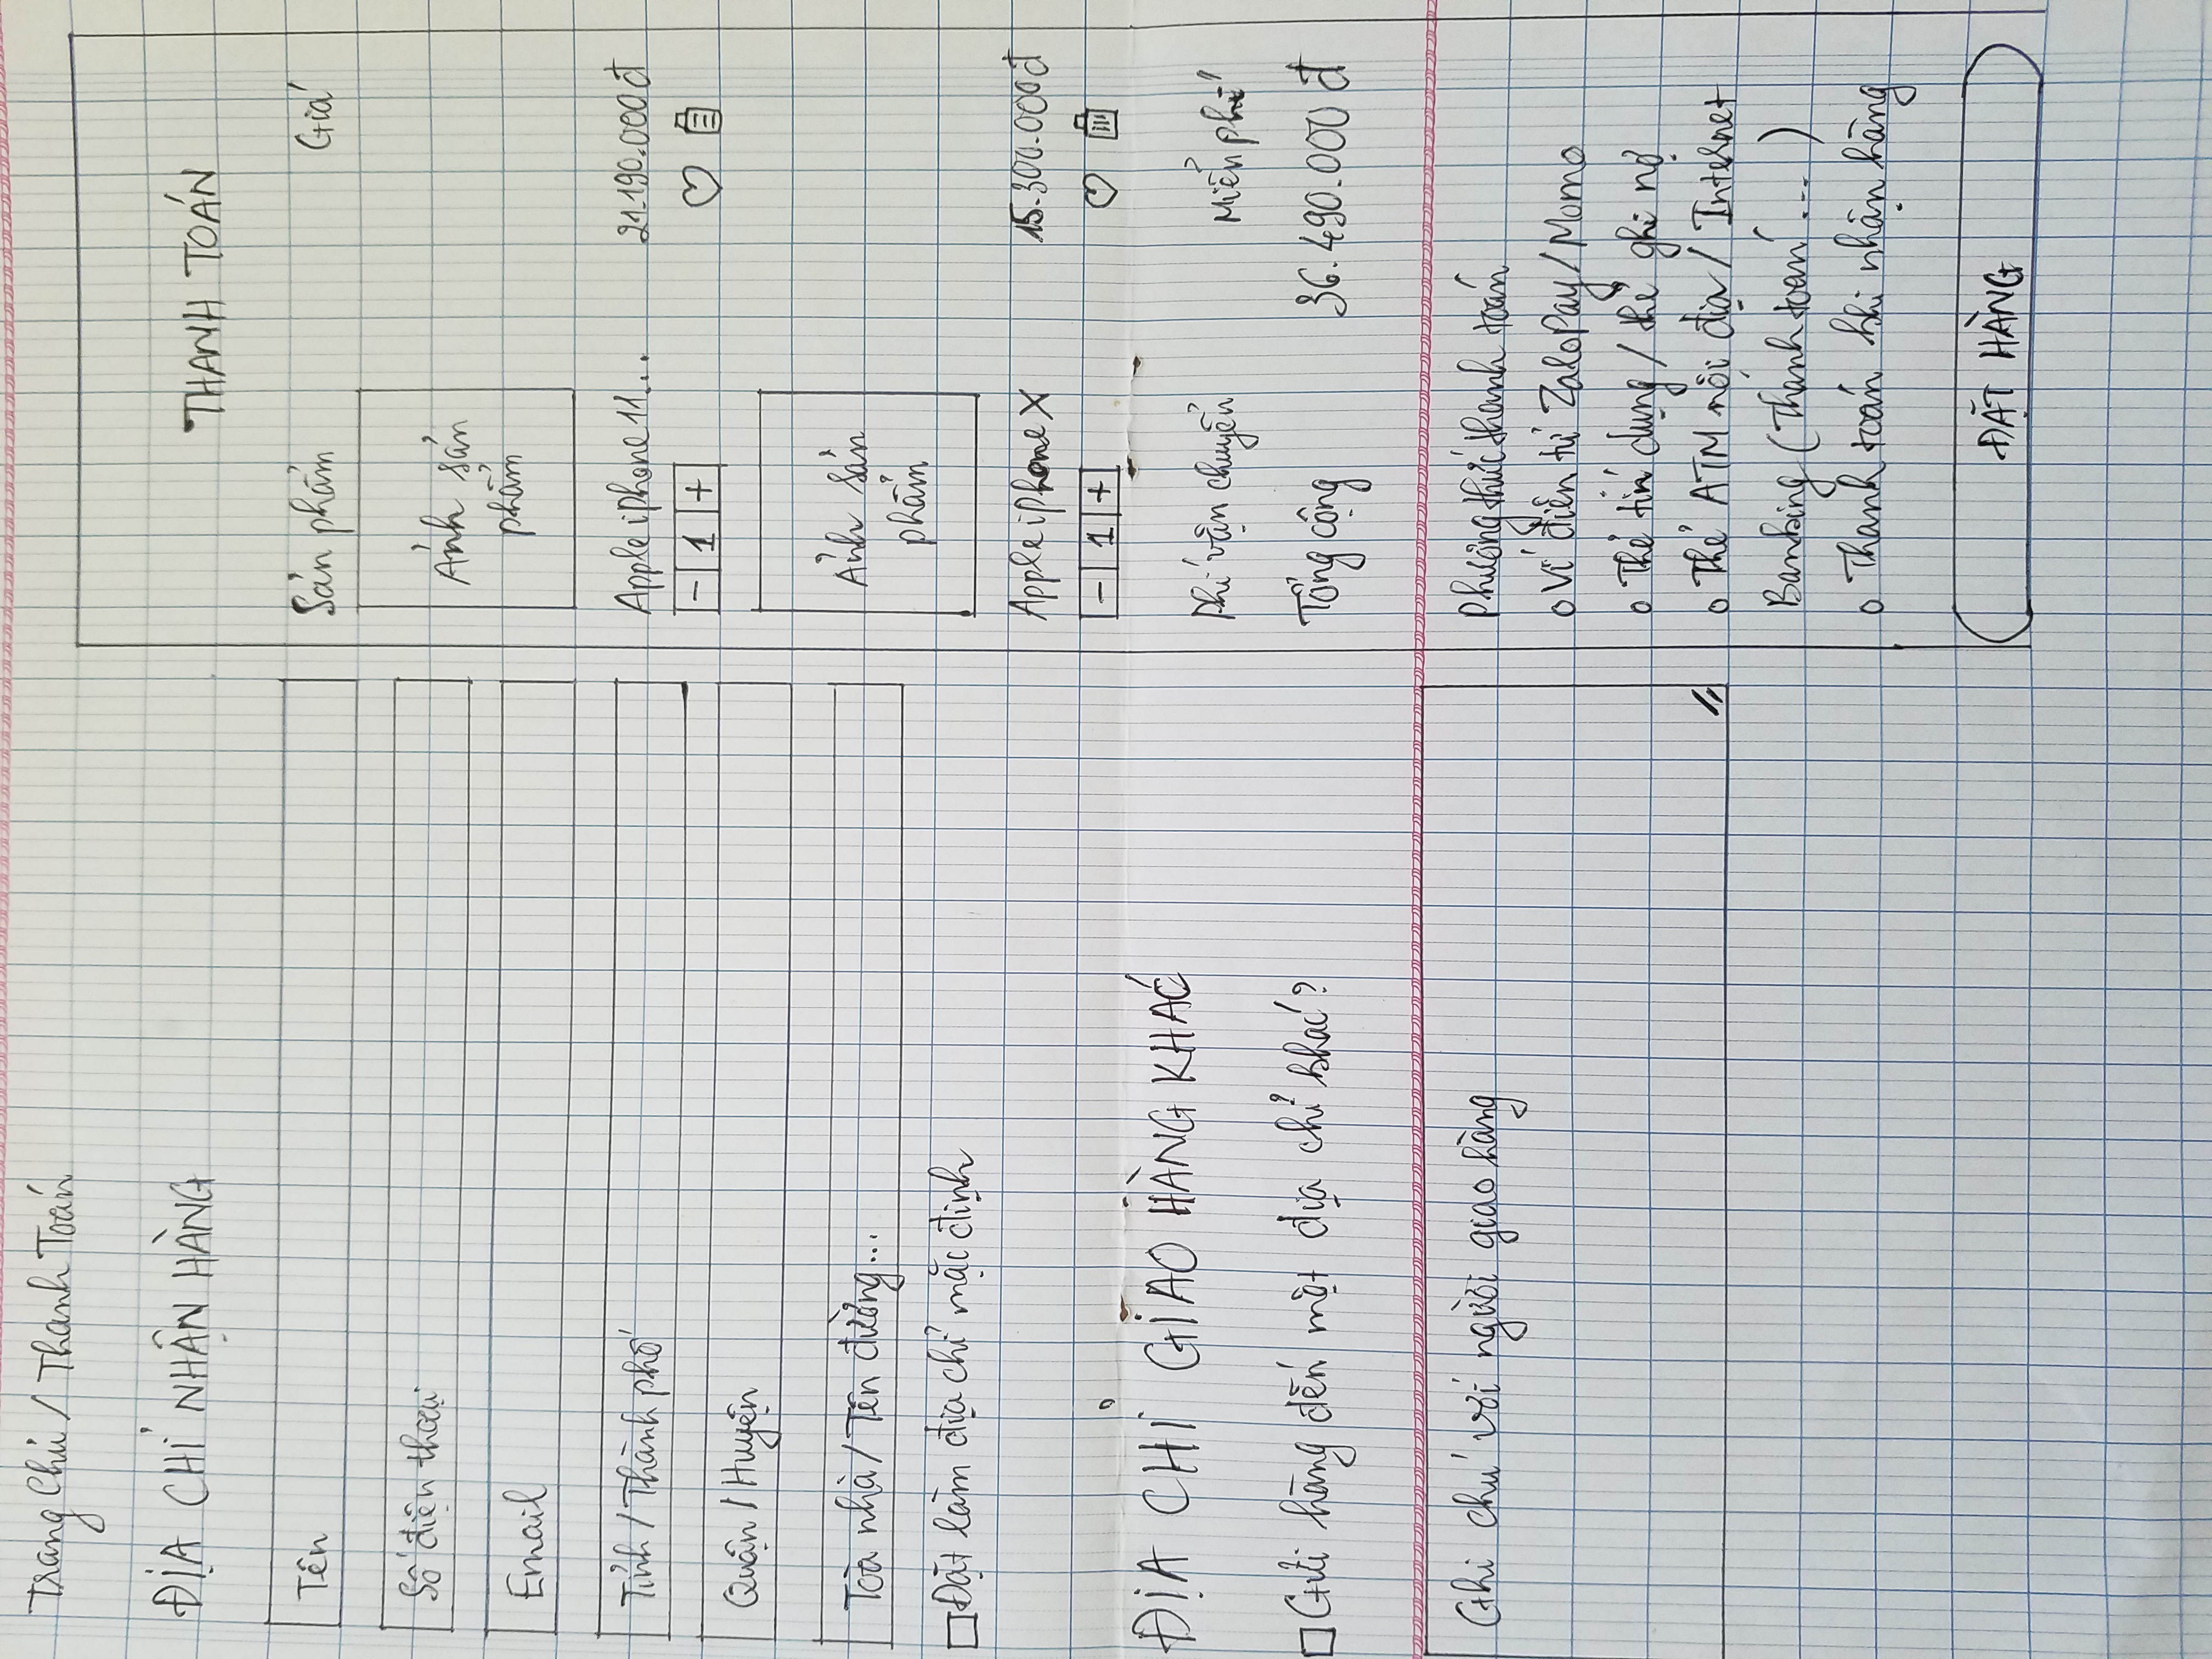 Trang Chủ / Thanh Toán
ĐỊA CHỈ NHẬN HÀNG
Tên
Số điện thoại
Email
Tỉnh / Thành phố
Quận / Huyện
Toà nhà / Tên đường...
Đặt làm địa chỉ mặc định
ĐỊA CHỈ GIAO HÀNG KHÁC
Gửi hàng đến một địa chỉ khác?
Ghi chú với người giao hàng
THANH TOÁN
Sản phẩm Giá
Ảnh sản
phẩm
Apple iphone 11... 21.190.000đ
- 1 +
Ảnh sản
phẩm
Apple iphone X 15.300.000đ
- 1 +
Phí vận chuyển Miển phí
Tổng cộng 36.490.000 đ
Phương thức thanh toán
Ví điện tử ZaloPay / Momo
Thẻ tín dụng / thẻ ghi nợ
Thẻ ATM nội địa / Internet
Banking (Thanh toán ...)
Thanh toán khi nhận hàng
ĐẶT HÀNG